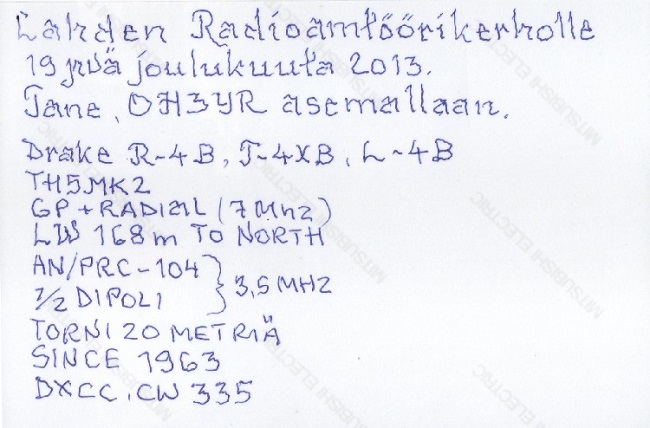 Lahden Radioamtöörikerholle
19 pvä joulukuuta 2013.
Jane, OH3YR asemallaan.
Drake R-4B, T-4XB, L-4B
TH5MK2
GP + RADIAL (7 Mhz)
LW 168m TO NORTH
AN/PRC-104
λ/2 DIPOLI } 3,5 MHZ
TORNI 20 METRIÄ
SINCE 1963
DXCC, CW 335
MITSUBISHI ELECTRIC